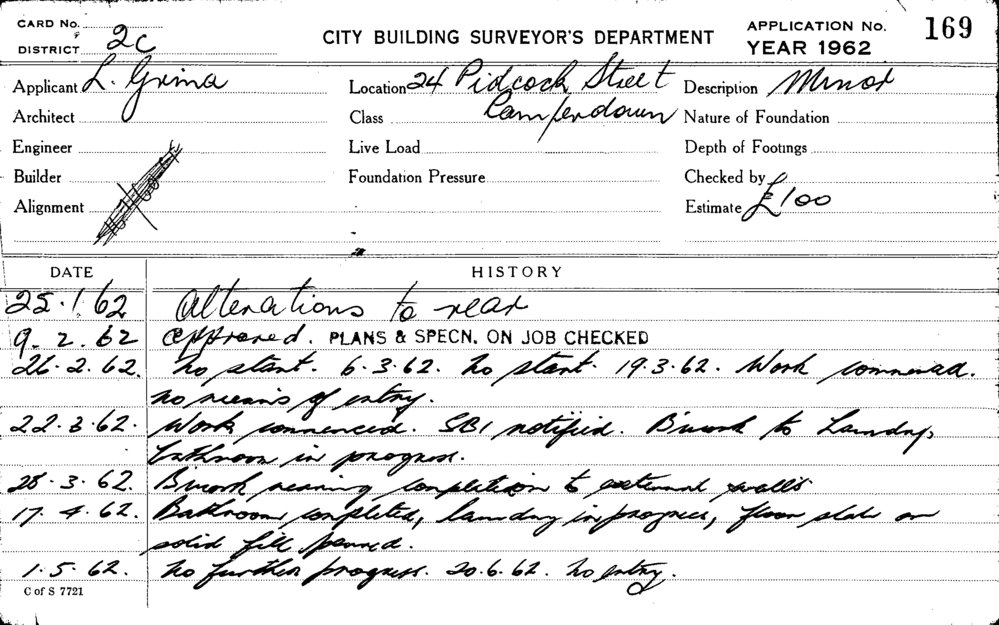 CARD No.
DISTRICT 2C
CITY BUILDING SURVEYOR'S DEPARTMENT
APPLICATION No. 169
YEAR 1962
Applicant L. Grima
Location 24 Pidcock Street
Camperdown
Description Minor
Architect
Class
Nature of Foundation
Engineer
Live Load
Depth of Footings
Builder
Foundation Pressure
Checked by
Alignment
Estimate £100
DATE HISTORY
25.1.62 Alterations to rear
9.2.62 approved. PLANS & SPECN. ON JOB CHECKED
26.2.62. No start. 6.3.62. No start. 19.3.62. Work commenced.
no means of entry.
22.3.62. Work commenced. SBI notified. Bwork to Laundry,
bathroom in progress.
28.3.62. Bwork nearing completion to external walls
17.4.62. Bathroom completed, laundry in progress, floor slab on
solid fill poured.
1.5.62. No further progress. 20.6.62. No entry.
C of S 7721